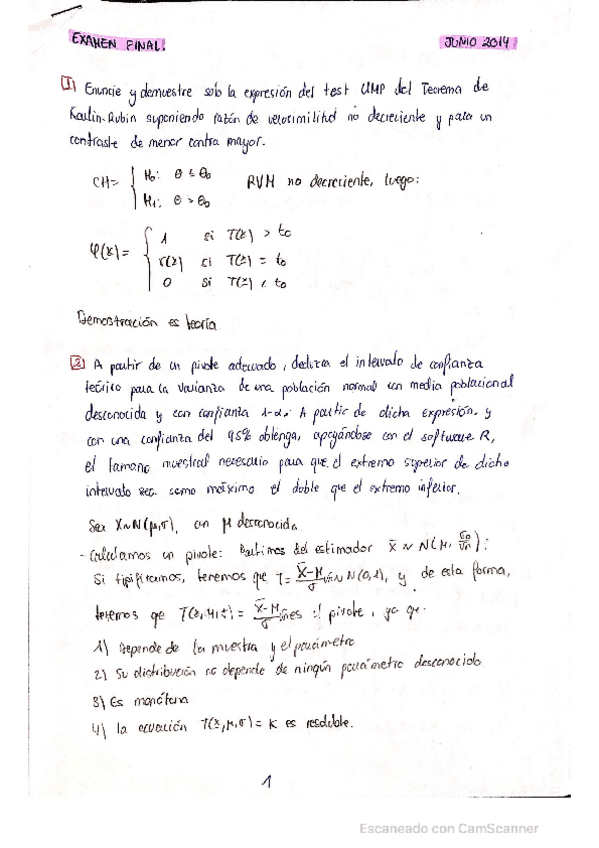 EXAMEN FINAL. JUNIO 2014
1) Enuncie y demuestre sob la expresión del test UMP del Teorema de
Karlin-Rubin suponiendo razón de verosimilitud no decreciente y para un
contraste de menor contra mayor.
CH= { H₀: θ ≤ θ₀ RVM no decreciente, luego:
H₁: θ > θ₀
φ(x)= { 1 si T(x) > t₀
r(x) si T(x) = t₀
0 si T(x) < t₀
Demostración es teoría
2) A partir de un pivote adecuado, deduzca el intervalo de confianza
teórico para la varianza de una población normal con media poblacional
desconocida y con confianza 1-α. A partir de dicha expresión, y
con una confianza del 95% obtenga, apoyándose con el software R,
el tamaño muestral necesario para que el extremo superior de dicho
intervalo sea como máximo el doble que el extremo inferior.
Sea X~N(μ,σ), con μ desconocida.
- Calculamos un pivote: Partimos del estimador x̄ ~ N(μ, σ₀/√n):
Si tipificamos, tenemos que T = (x̄-μ)/σ √n ~ N(0,1), y de esta forma,
tenemos que = (x̄-μ)/σ √n es el pivote, ya que:
1) Depende de la muestra y el parámetro
2) Su distribución no depende de ningún parámetro desconocido
3) Es monótona
4) la ecuación T(x,μ,σ) = K es resoluble.
1
Escaneado con CamScanner